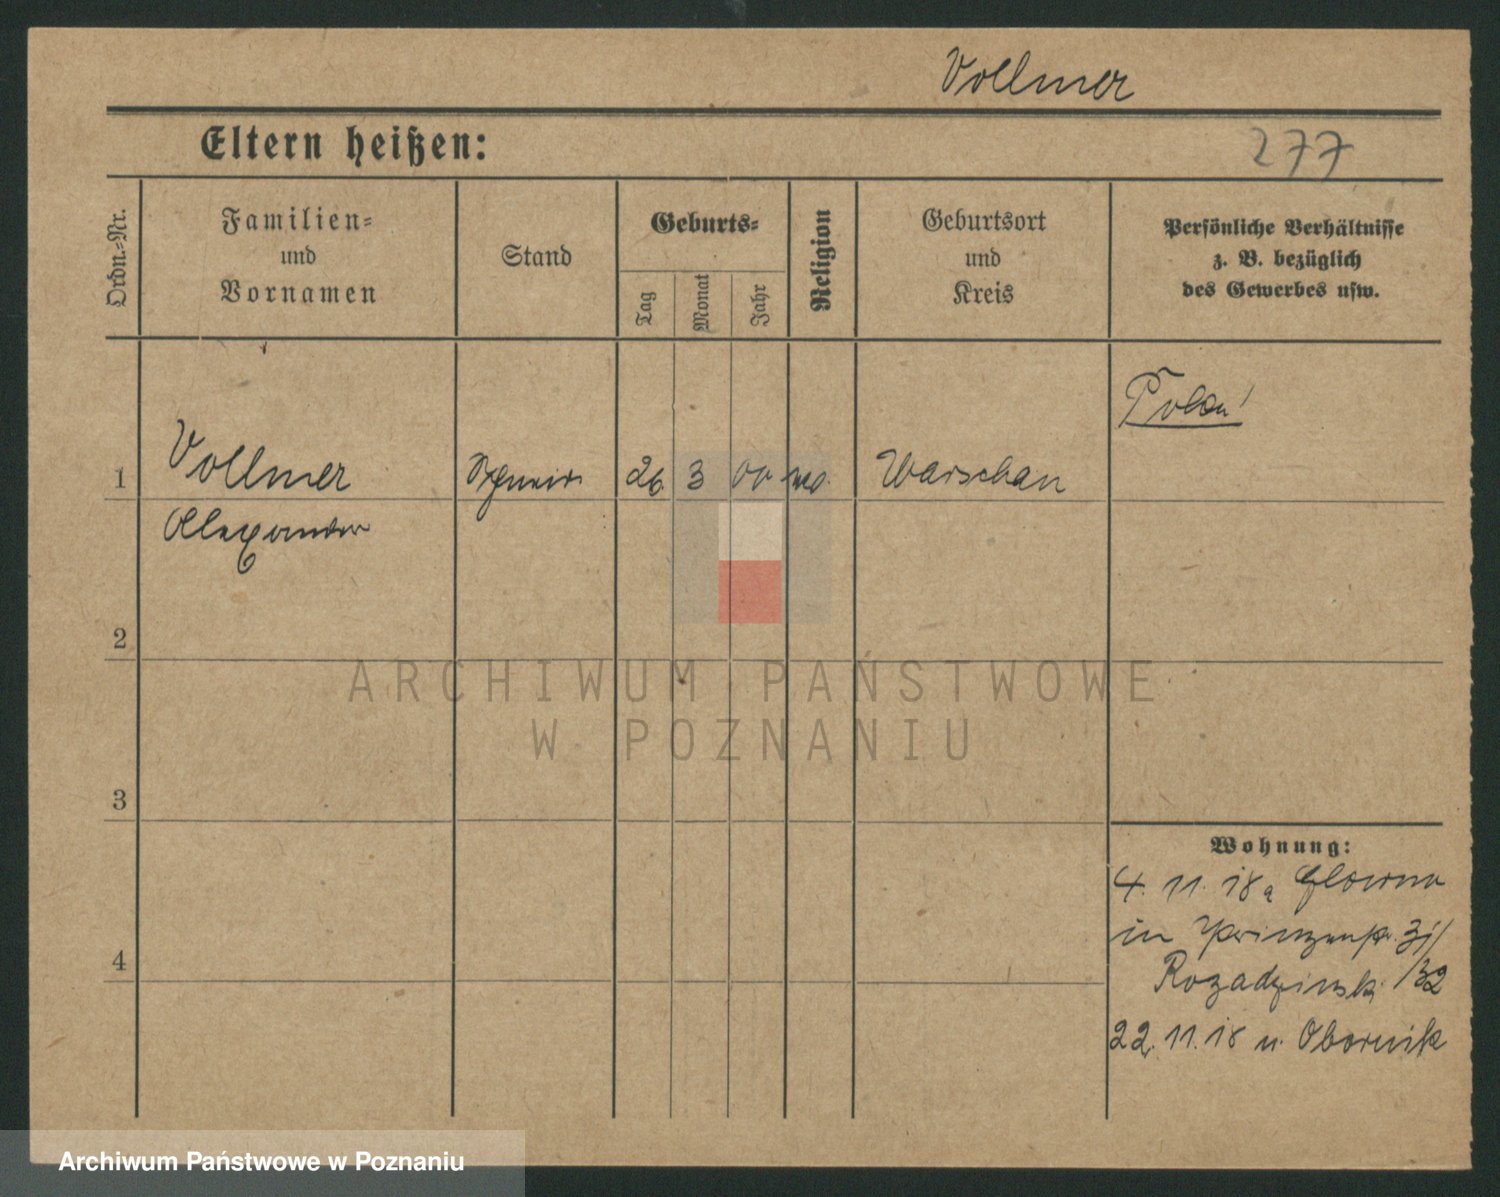 Vollmer
Eltern heißen:
277
Ordn.-Nr.
Familien-
und
Vornamen
Stand
Geburts-
Tag
Monat
Jahr
Religion
Geburtsort
und
Kreis
Persönliche Verhältnisse
z. B. bezüglich
des Gewerbes usw.
Polen!
1
Vollmer
26
3
00
Warschau
Alexander
2
ARCHIWUM PAŃSTWOWE
W POZNANIU
3
Wohnung:
4. 11. 18 a Glowno
in Prinzenstr. 31/
4
Rozadzinski /32
22. 11. 18 n. Obornik
Archiwum Państwowe w Poznaniu